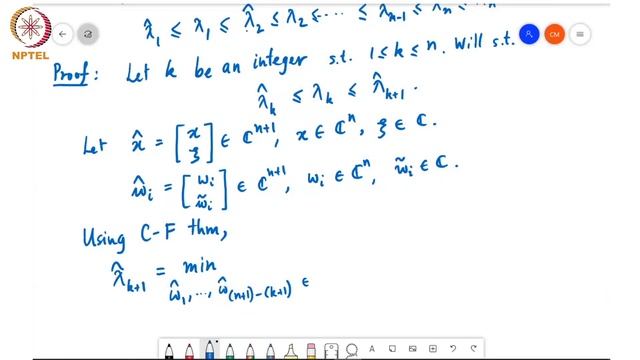 λ̂₁ ≤ λ₁ ≤ λ̂₂ ≤ λ₂ ≤ ⋯ ≤ λₙ₋₁ ≤ λ̂ₙ ≤
NPTEL
CM
Proof: Let k be an integer s.t. 1 ≤ k ≤ n. Will s.t.
λ̂ₖ ≤ λₖ ≤ λ̂ₖ₊₁.
Let x̂ = [x ξ] ∈ ℂⁿ⁺¹, x ∈ ℂⁿ, ξ ∈ ℂ.
ŵᵢ = [wᵢ w̃ᵢ] ∈ ℂⁿ⁺¹, wᵢ ∈ ℂⁿ, w̃ᵢ ∈ ℂ.
Using C-F thm,
λ̂ₖ₊₁ = min
ŵ₁, ⋯, ŵ₍ₙ₊₁₎₋₍ₖ₊₁₎ ∈